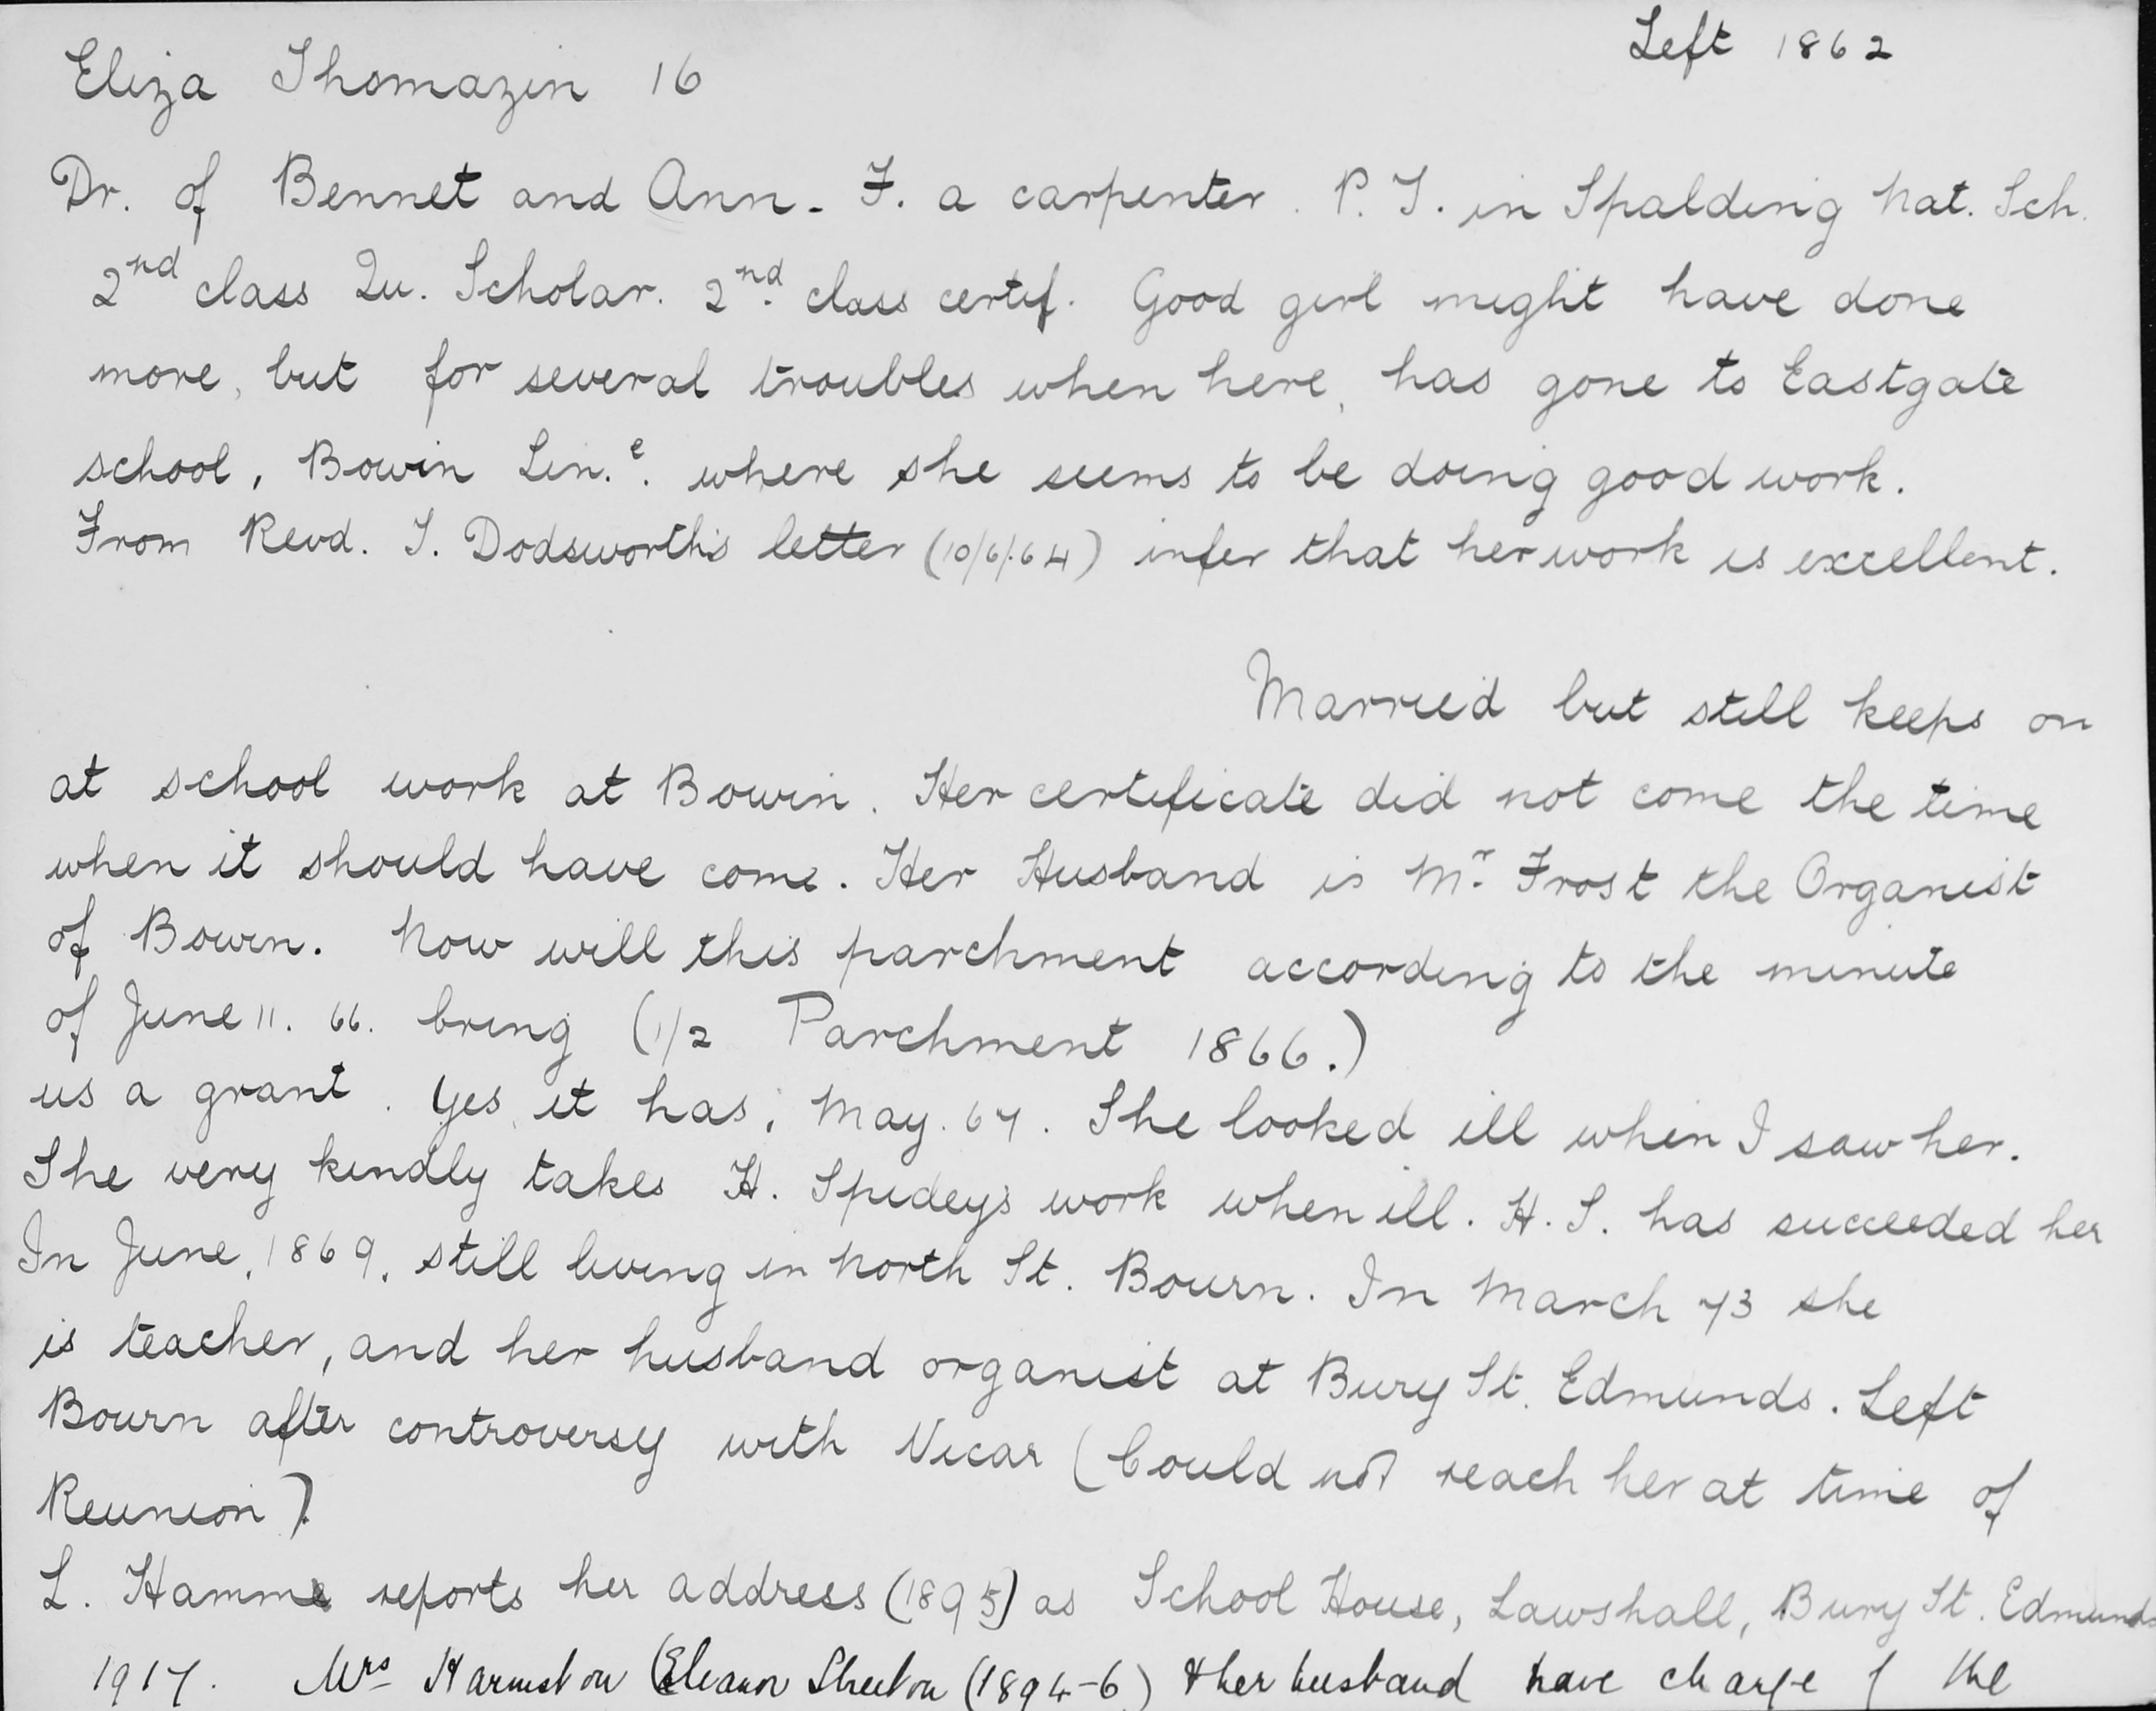 Left 1862
Eliza Thomazin 16
Dr. of Bennet and Ann - F. a carpenter. P. T. in Spalding Nat. Sch.
2nd class Qu. Scholar. 2nd class certif. Good girl might have done
more, but for several troubles when here, has gone to Eastgate
school, Bowin Lin.e. where she seems to be doing good work.
From Revd. J. Dodsworth's letter (10/6/.64) infer that her work is excellent.
Married but still keeps on
at school work at Bowin. Her certificate did not come the time
when it should have come. Her Husband is Mr. Frost the Organist
of Bown. Now will this parchment according to the minute
of June 11. 66. bring (1/2 Parchment 1866.)
us a grant. Yes, it has, May. 67. She looked ill when I saw her.
She very kindly takes H. Spidey's work when ill. H. S. has succeeded her
In June, 1869, still living in North St. Bourn. In March 73 she
is teacher, and her husband organist at Bury St. Edmunds. Left
Bourn after controversy with Vicar (Could not reach her at time of
Reunion).
L. Hamme reports her address (1895) as School House, Lawshall, Bury St. Edmunds
1917. Mrs Harmston (Eleanor Sheelon (1894-6) & her husband have charge of the